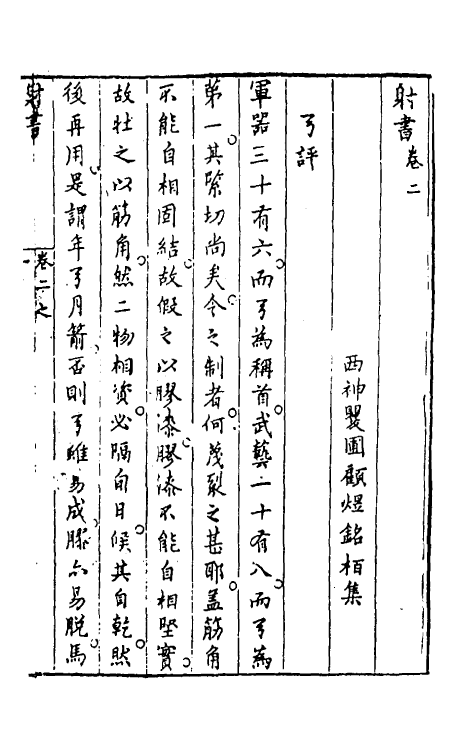 射書卷二
西神嬰圃顧煜銘栢集
弓評
軍器三十有六而弓為稱首武藝一十有八而弓為
第一其緊切尚矣今之制者何茂裂之甚耶蓋筋角
不能自相固結故假之以膠漆膠漆不能自相堅實
故壯之以筋角然二物相資必隔旬日候其自乾然
後再用是謂年弓月箭否則弓雖易成膠亦易脫馬
射書
卷二之
一